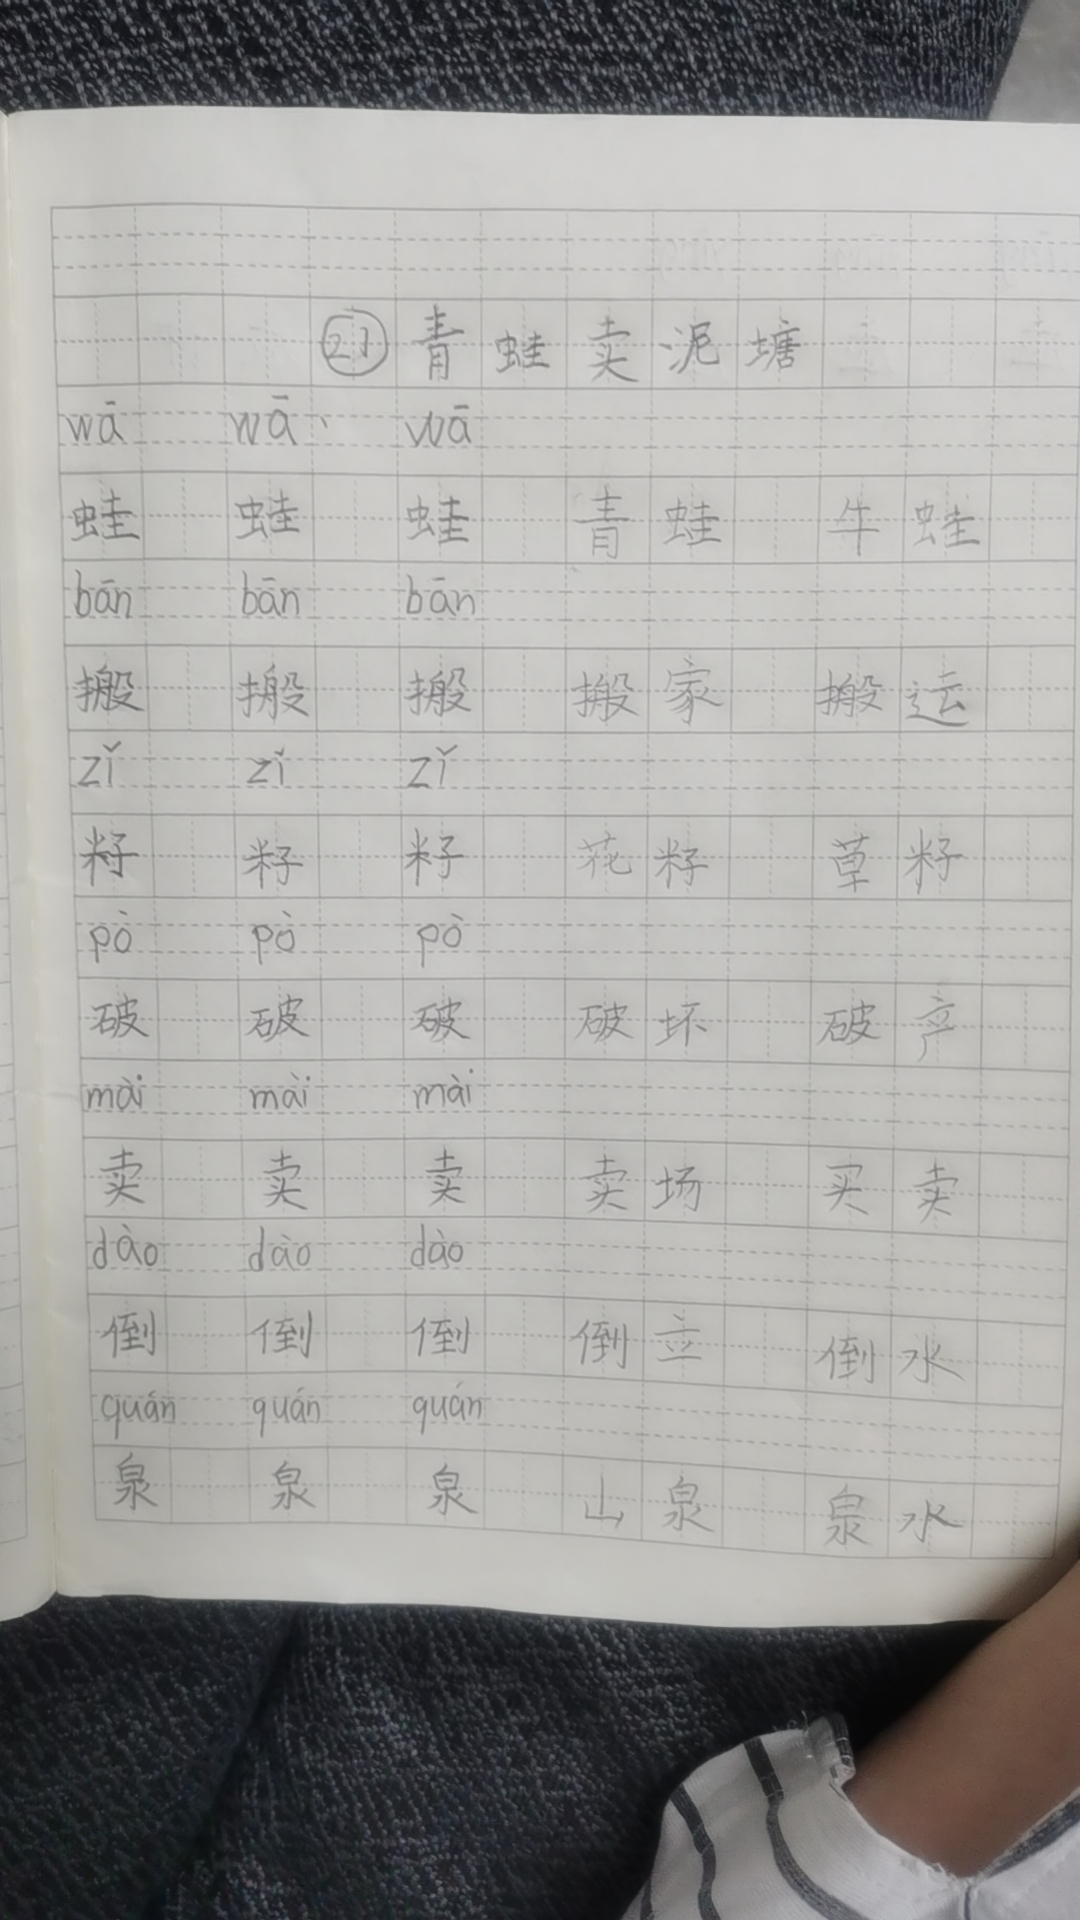 ㉑青蛙卖泥塘
wā wā wā
蛙 蛙 蛙 青蛙 牛蛙
bān bān bān
搬 搬 搬 搬家 搬运
zǐ zǐ zǐ
籽 籽 籽 花籽 草籽
pò pò pò
破 破 破 破坏 破产
mài mài mài
卖 卖 卖 卖场 买卖
dào dào dào
倒 倒 倒 倒立 倒水
quán quán quán
泉 泉 泉 山泉 泉水